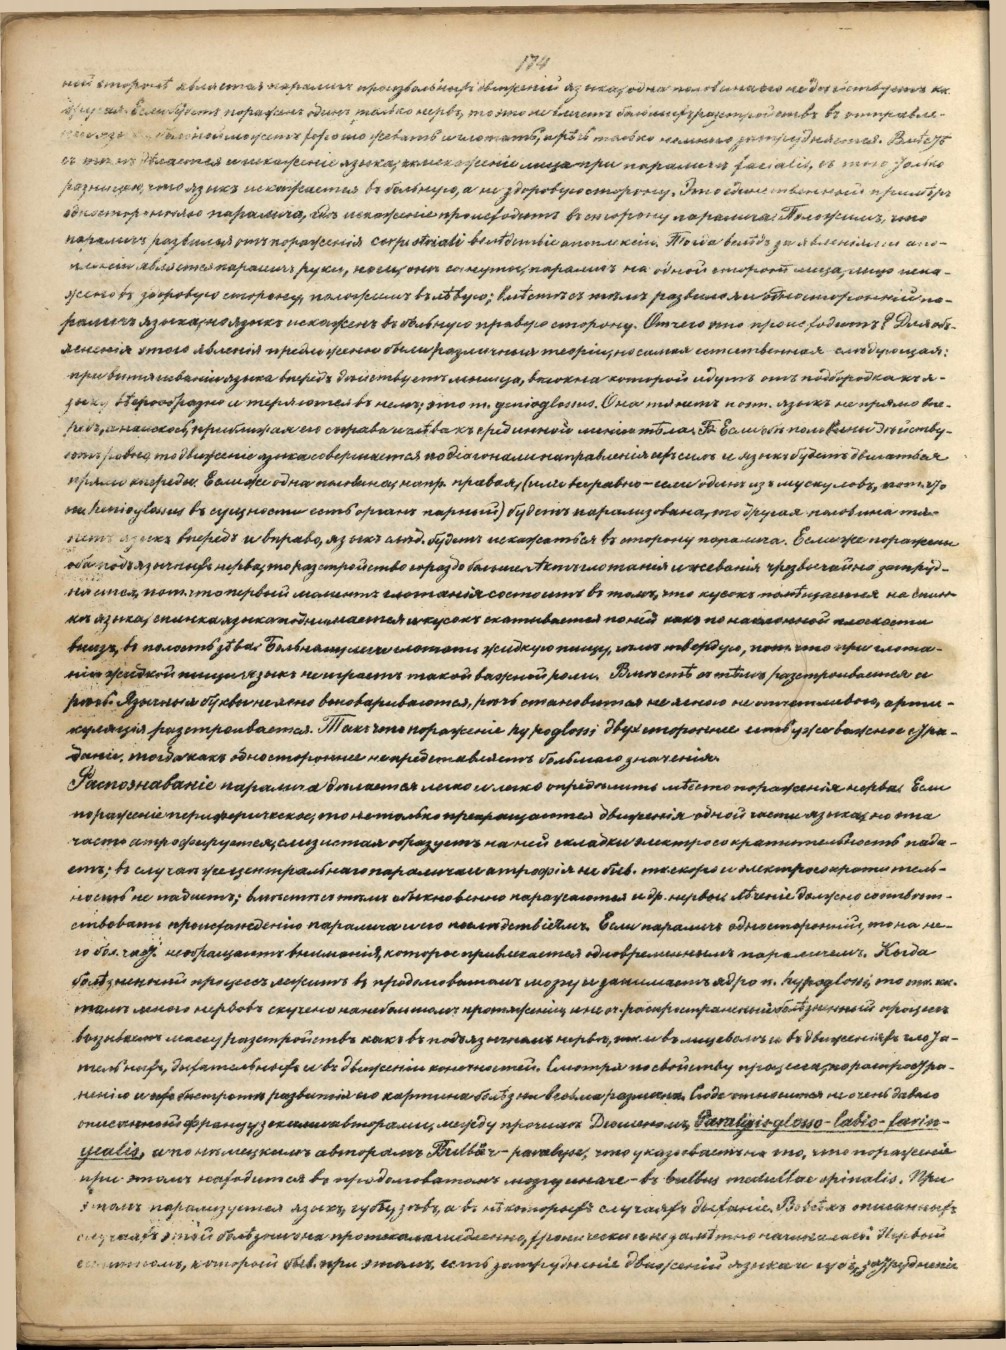 174
ной стороне является параличъ произвольныхъ движеній языка, одна половина его не действуетъ как
другая. Если будетъ пораженъ одинъ только нервъ, то это не влечетъ большихъ разстройствъ въ отправле-
больной можетъ хорошо жевать и глотать, а речь только немного затрудняется. Вместе
съ темъ делается и искаженіе языка, какъ искаженіе лица при параличе facialis, съ тою только
разницею, что языкъ искажается въ больную, а не здоровую сторону. Это единственный примеръ
одностороннего паралича, где искаженіе происходитъ въ сторону паралича. Положимъ, что
параличъ развился отъ пораженія corp. striati вследствіе апоплексіи. Тогда вследъ за явленіями апо-
плексіи является параличъ руки, ноги, они согнуты, параличъ на одной стороне лица, лицо иска-
жено въ здоровую сторону, положимъ въ левую; вместе съ темъ развился и односторонній па-
раличъ языка, но языкъ искаженъ въ больную правую сторону. Отчего это происходитъ? Для объ-
ясненія этого явленія предложены были различныя теоріи, но самая естественная следующая:
при вытягиваніи языка впередъ действуетъ мышца, волокна которой идутъ отъ подбородка къ я-
зыку веерообразно и теряются въ немъ; это m. genioglossus. Она тянетъ пот. языкъ не прямо впе-
редъ, а наискось, приближая его справа и слева къ срединной линіи тела. Если обе половины действу-
ютъ ровно, то движеніе языка совершается по діагонали направленія ихъ силъ и языкъ будетъ двигаться
прямо впередъ. Если же одна половина, напр. правая, (или всеравно - если одинъ изъ мускуловъ, потому что
m. henioglossus въ сущности есть органъ парный) будетъ парализована, то другая половина тя-
нетъ языкъ впередъ и вправо, языкъ след. будетъ искажаться въ сторону паралича. Если же поражены
оба подъязычныхъ нерва, то разстройство гораздо больше. Актъ глотанія и жеванія чрезвычайно затруд-
няется, пот. что первый моментъ глотанія состоитъ въ томъ, что кусокъ помещается на спин-
ке языка, спинка языка поднимается и кусокъ скатывается по ней какъ по наклонной плоскости
внизъ, въ полость зева. Больному легче глотать жидкую пищу, чемъ твердую, пот. что при глота-
ніи жидкой пищи языкъ не играетъ такой важной роли. Вместе съ темъ разстроивается и
речь. Язычныя буквы неясно выговариваются, речь становится неясною, неотчетливою, арти-
куляція разстроивается. Такъ что пораженіе hypoglossi двухстороннее есть уже важное стра-
даніе, тогда какъ одностороннее не представляетъ большаго значенія.
Распознаваніе паралича делается легко и легко определить место пораженія нерва. Если
пораженіе периферическое, то не только прекращается движенія одной части языка, но эта
часть атрофируется, слизистая образуетъ на ней складки, электросократительность пада-
етъ; въ случае же центральнаго паралича и атрофія не быв. такъ скоро и электросократитель-
ность не падаетъ; вместе съ темъ обыкновенно поражаются и др. нервы. Леченіе должно соответ-
ствовать происхожденію паралича и его последствіямъ. Если параличъ односторонній, то на не-
го бол. част. не обращаютъ вниманія, которое привлекается одновременнымъ параличемъ. Когда
болезненный процессъ лежитъ въ продолговатомъ мозгу и занимаетъ ядро n. hypoglossi, то так. как.
тамъ много нервовъ скучено на небольшомъ протяженіи, и не оч. распространенный болезненный процессъ
вызываетъ массу разстройствъ какъ въ подъязычномъ нерве, так. и въ лицевомъ и въ движеніяхъ глота-
тельныхъ, дыхательныхъ и въ движеніи конечностей. Смотря по свойству процесса, по распростра-
ненію и по быстроте развитія его картина болезни весьма различна. Сюда относится не очень давно
описанный французскими авторами, между прочимъ Дюшеномъ, Paralysis glosso-labio-larin-
gealis, а по немецкимъ авторамъ Bulbär-paralyse, что указываетъ на то, что пораженіе
при этомъ находится въ продолговатомъ мозгу иначе - въ bulbus medullae spinalis. При
этомъ парализуется языкъ, губы, зевъ, а въ некоторыхъ случаяхъ дыханіе. Во всехъ описанныхъ
случаяхъ этой болезни она протекала медленно, хронически и незаметно начиналась. Первый
симптомъ, который быв. при этомъ, есть затрудненіе движеній языка и губъ, затрудненіе